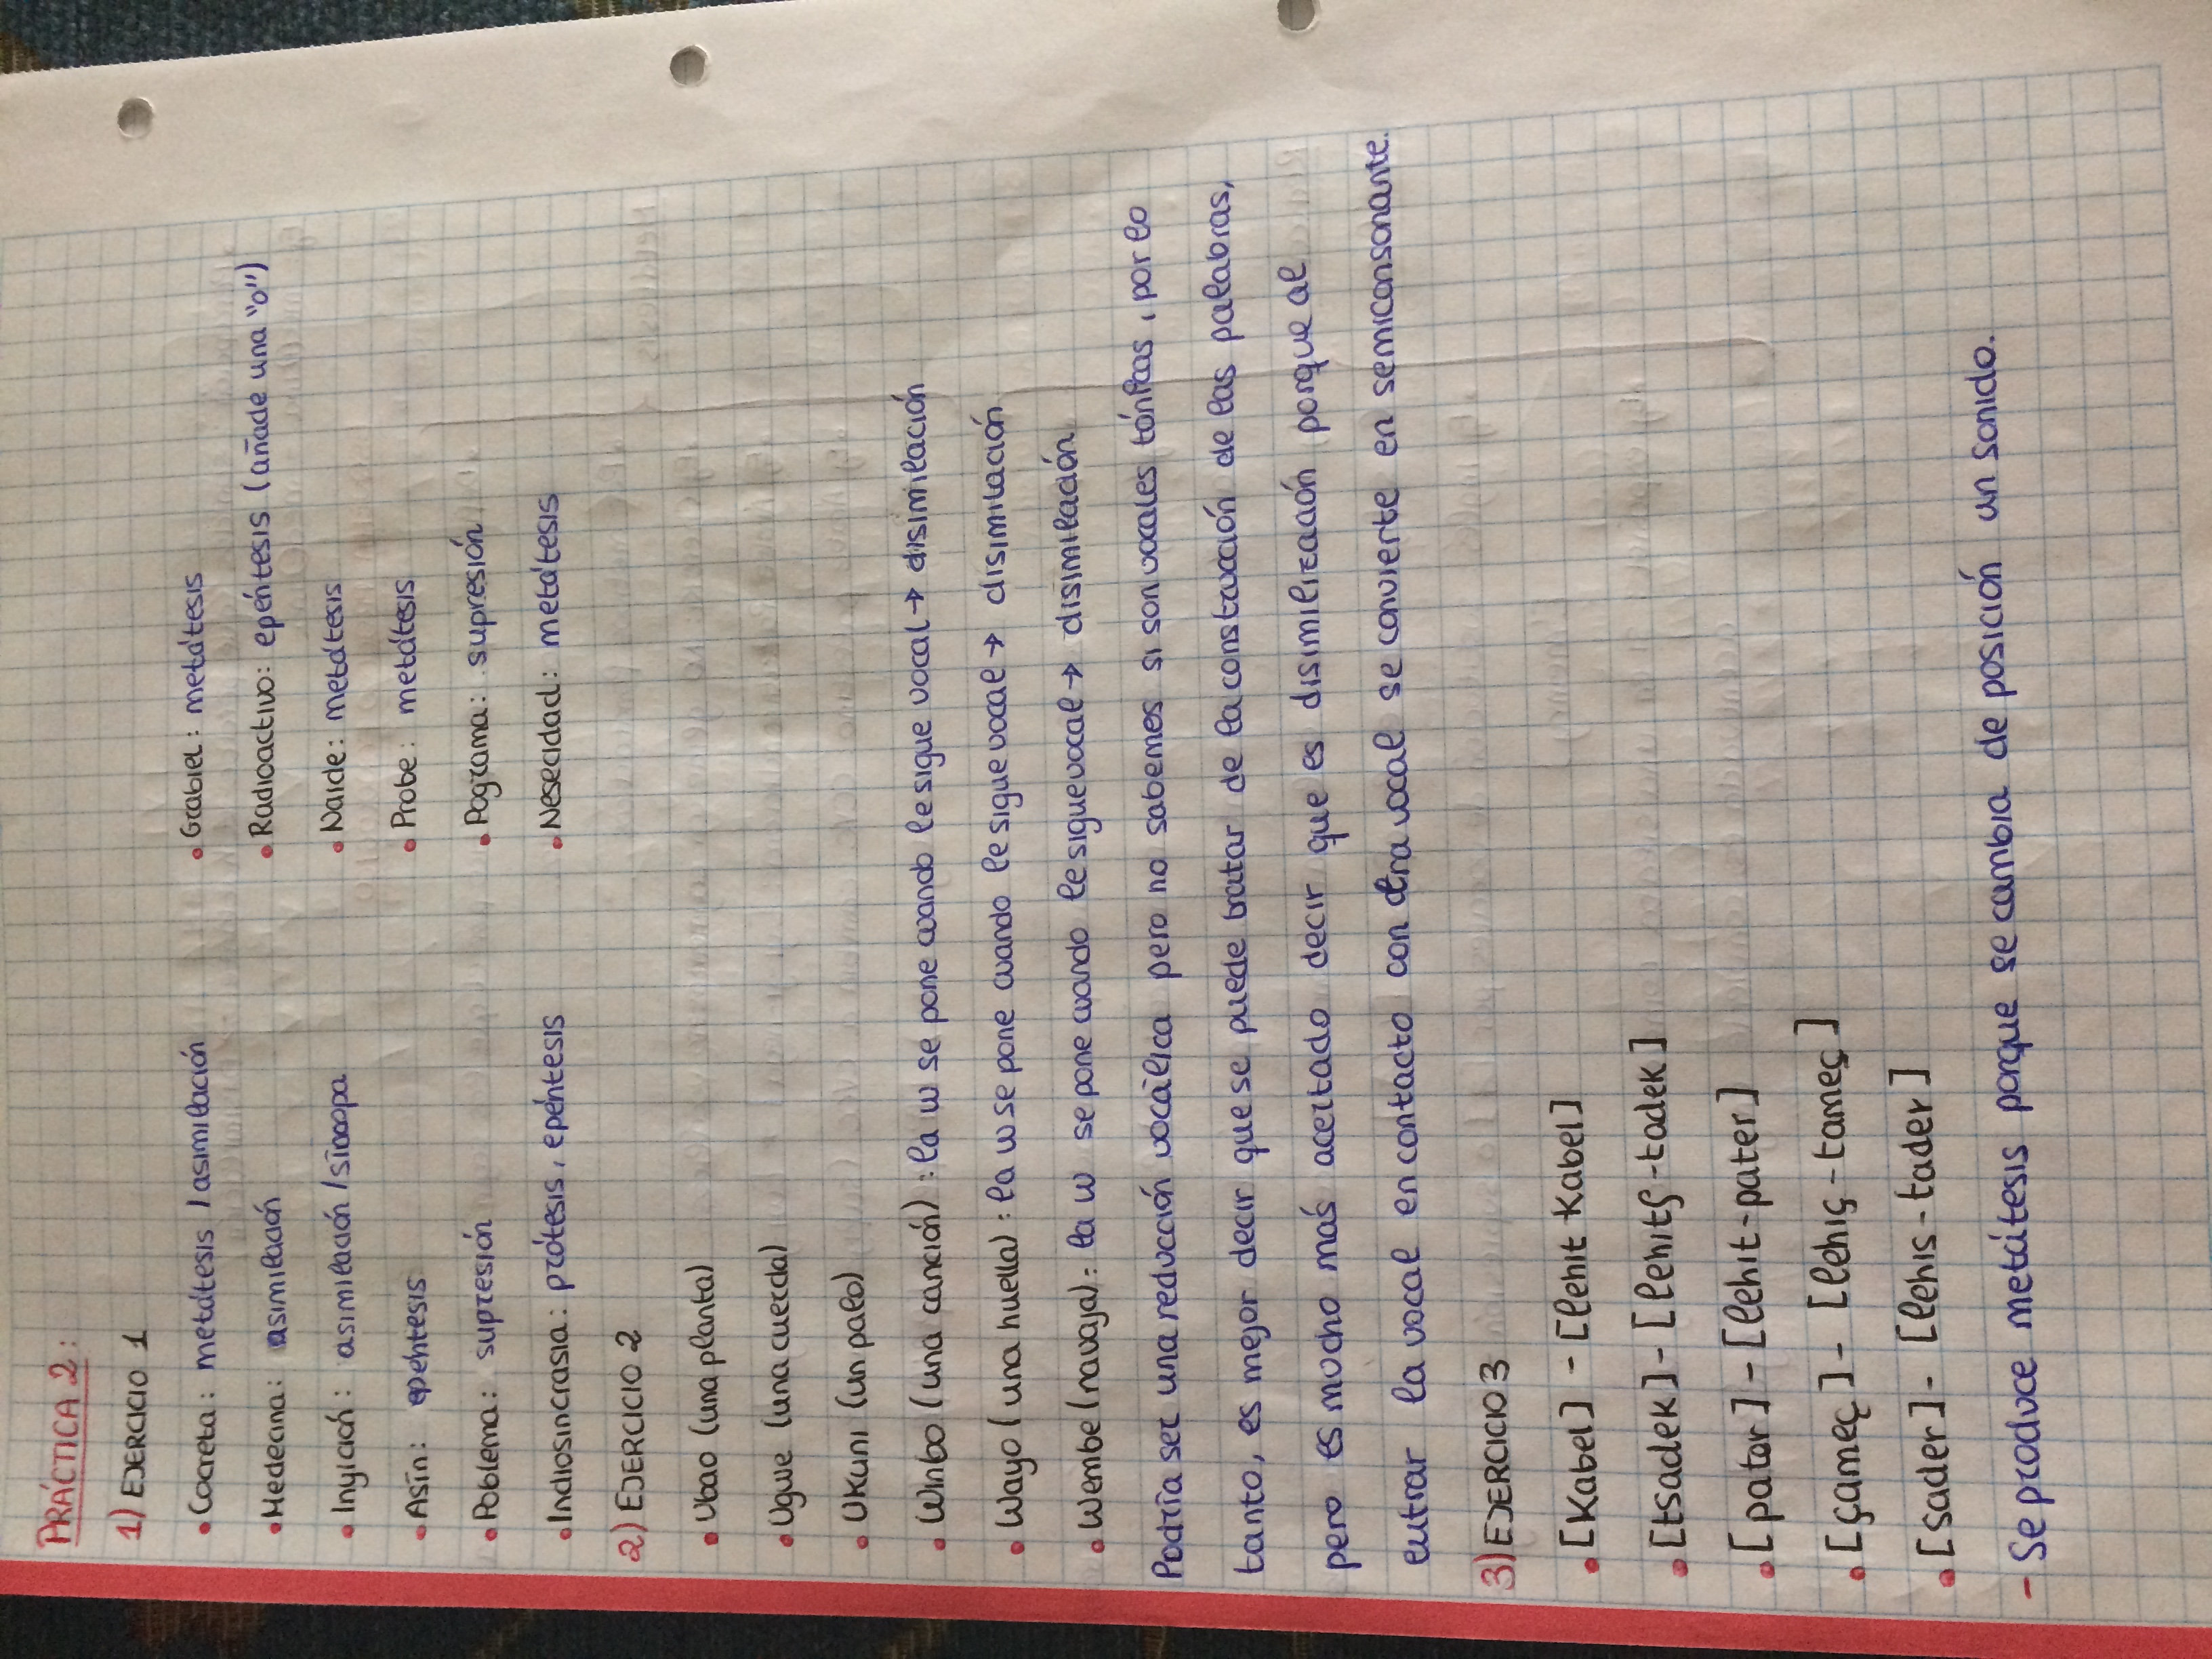 PRÁCTICA 2:
1) EJERCICIO 1
• Cocreta: metátesis / asimilación
• Medecina: asimilación
• Inyición: asimilación / síncopa
• Asín: epéntesis
• Poblema: supresión
• Indiosincrasia: prótesis, epéntesis
• Grabiel: metátesis
• Radioactivo: epéntesis (añade una "o")
• Naide: metátesis
• Probe: metátesis
• Pograma: supresión
• Nesecidad: metátesis
2) EJERCICIO 2
• Ubao (una planta)
• Ugwe (una cuerda)
• Ukuni (un palo)
• Wimbo (una canción): la w se pone cuando le sigue vocal → disimilación
• Wayo (una huella): la w se pone cuando le sigue vocal → disimilación
• Wembe (navaja): la w se pone cuando le sigue vocal → disimilación
Podría ser una reducción vocálica pero no sabemos si son vocales tónicas, por lo
tanto, es mejor decir que se puede tratar de la construcción de las palabras,
pero es mucho más acertado decir que es disimilización porque al
entrar la vocal en contacto con otra vocal se convierte en semiconsonante.
3) EJERCICIO 3
• [Kabel] - [lehit Kabel]
• [tsadek] - [lehitʂ-tadek]
• [pater] - [lehit-pater]
• [çameç] - [lehiç-tameç]
• [sader] - [lehis-tader]
- Se produce metátesis porque se cambia de posición un sonido.